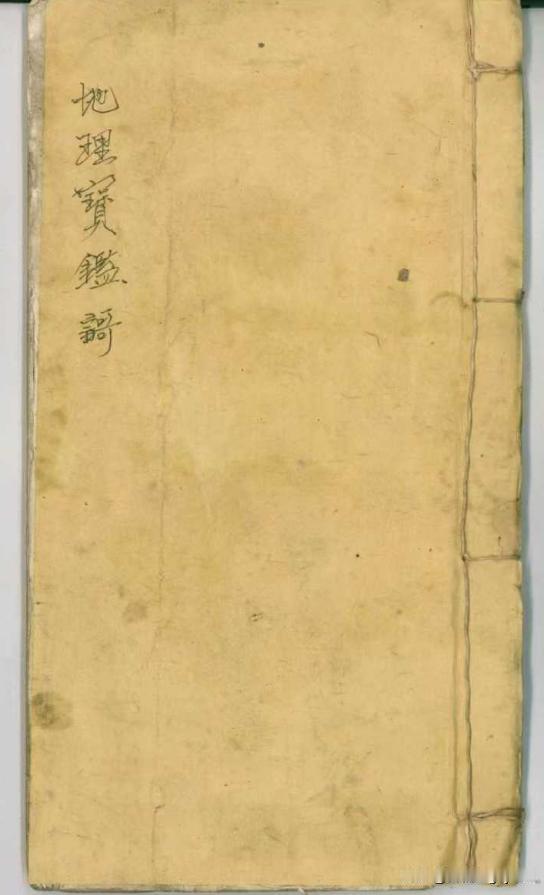 地理寶鑑謌